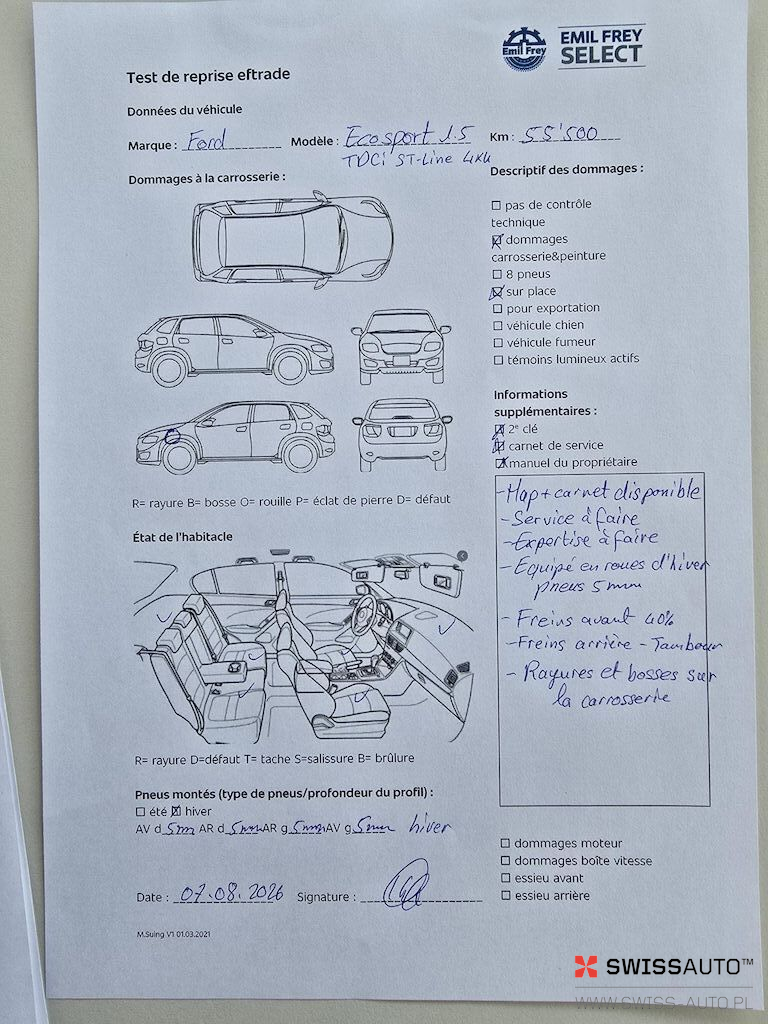 Emil Frey
EMIL FREY
SELECT
Test de reprise eftrade
Données du véhicule
Marque : Ford Modèle : Ecosport 1.5 Km : 55'500
TDCi ST-Line 4x4
Dommages à la carrosserie :
Descriptif des dommages :
pas de contrôle
technique
dommages
carrosserie&peinture
8 pneus
sur place
pour exportation
véhicule chien
véhicule fumeur
témoins lumineux actifs
Informations
supplémentaires :
2e clé
carnet de service
manuel du propriétaire
R= rayure B= bosse O= rouille P= éclat de pierre D= défaut
État de l'habitacle
- Map + carnet disponible
- Service à faire
- Expertise à faire
- Equipé en roues d'hiver
pneus 5 mm
- Freins avant 40%
- Freins arrière - Tambour
- Rayures et bosses sur
la carrosserie
R= rayure D=défaut T= tache S=salissure B= brûlure
Pneus montés (type de pneus/profondeur du profil) :
été hiver
AV d 5mm AR d 5mm AR g 5mm AV g 5mm hiver
dommages moteur
dommages boîte vitesse
essieu avant
essieu arrière
Date : 07.08.2026 Signature :
M.Suing V1 01.03.2021
SWISSAUTO™
WWW.SWISS-AUTO.PL